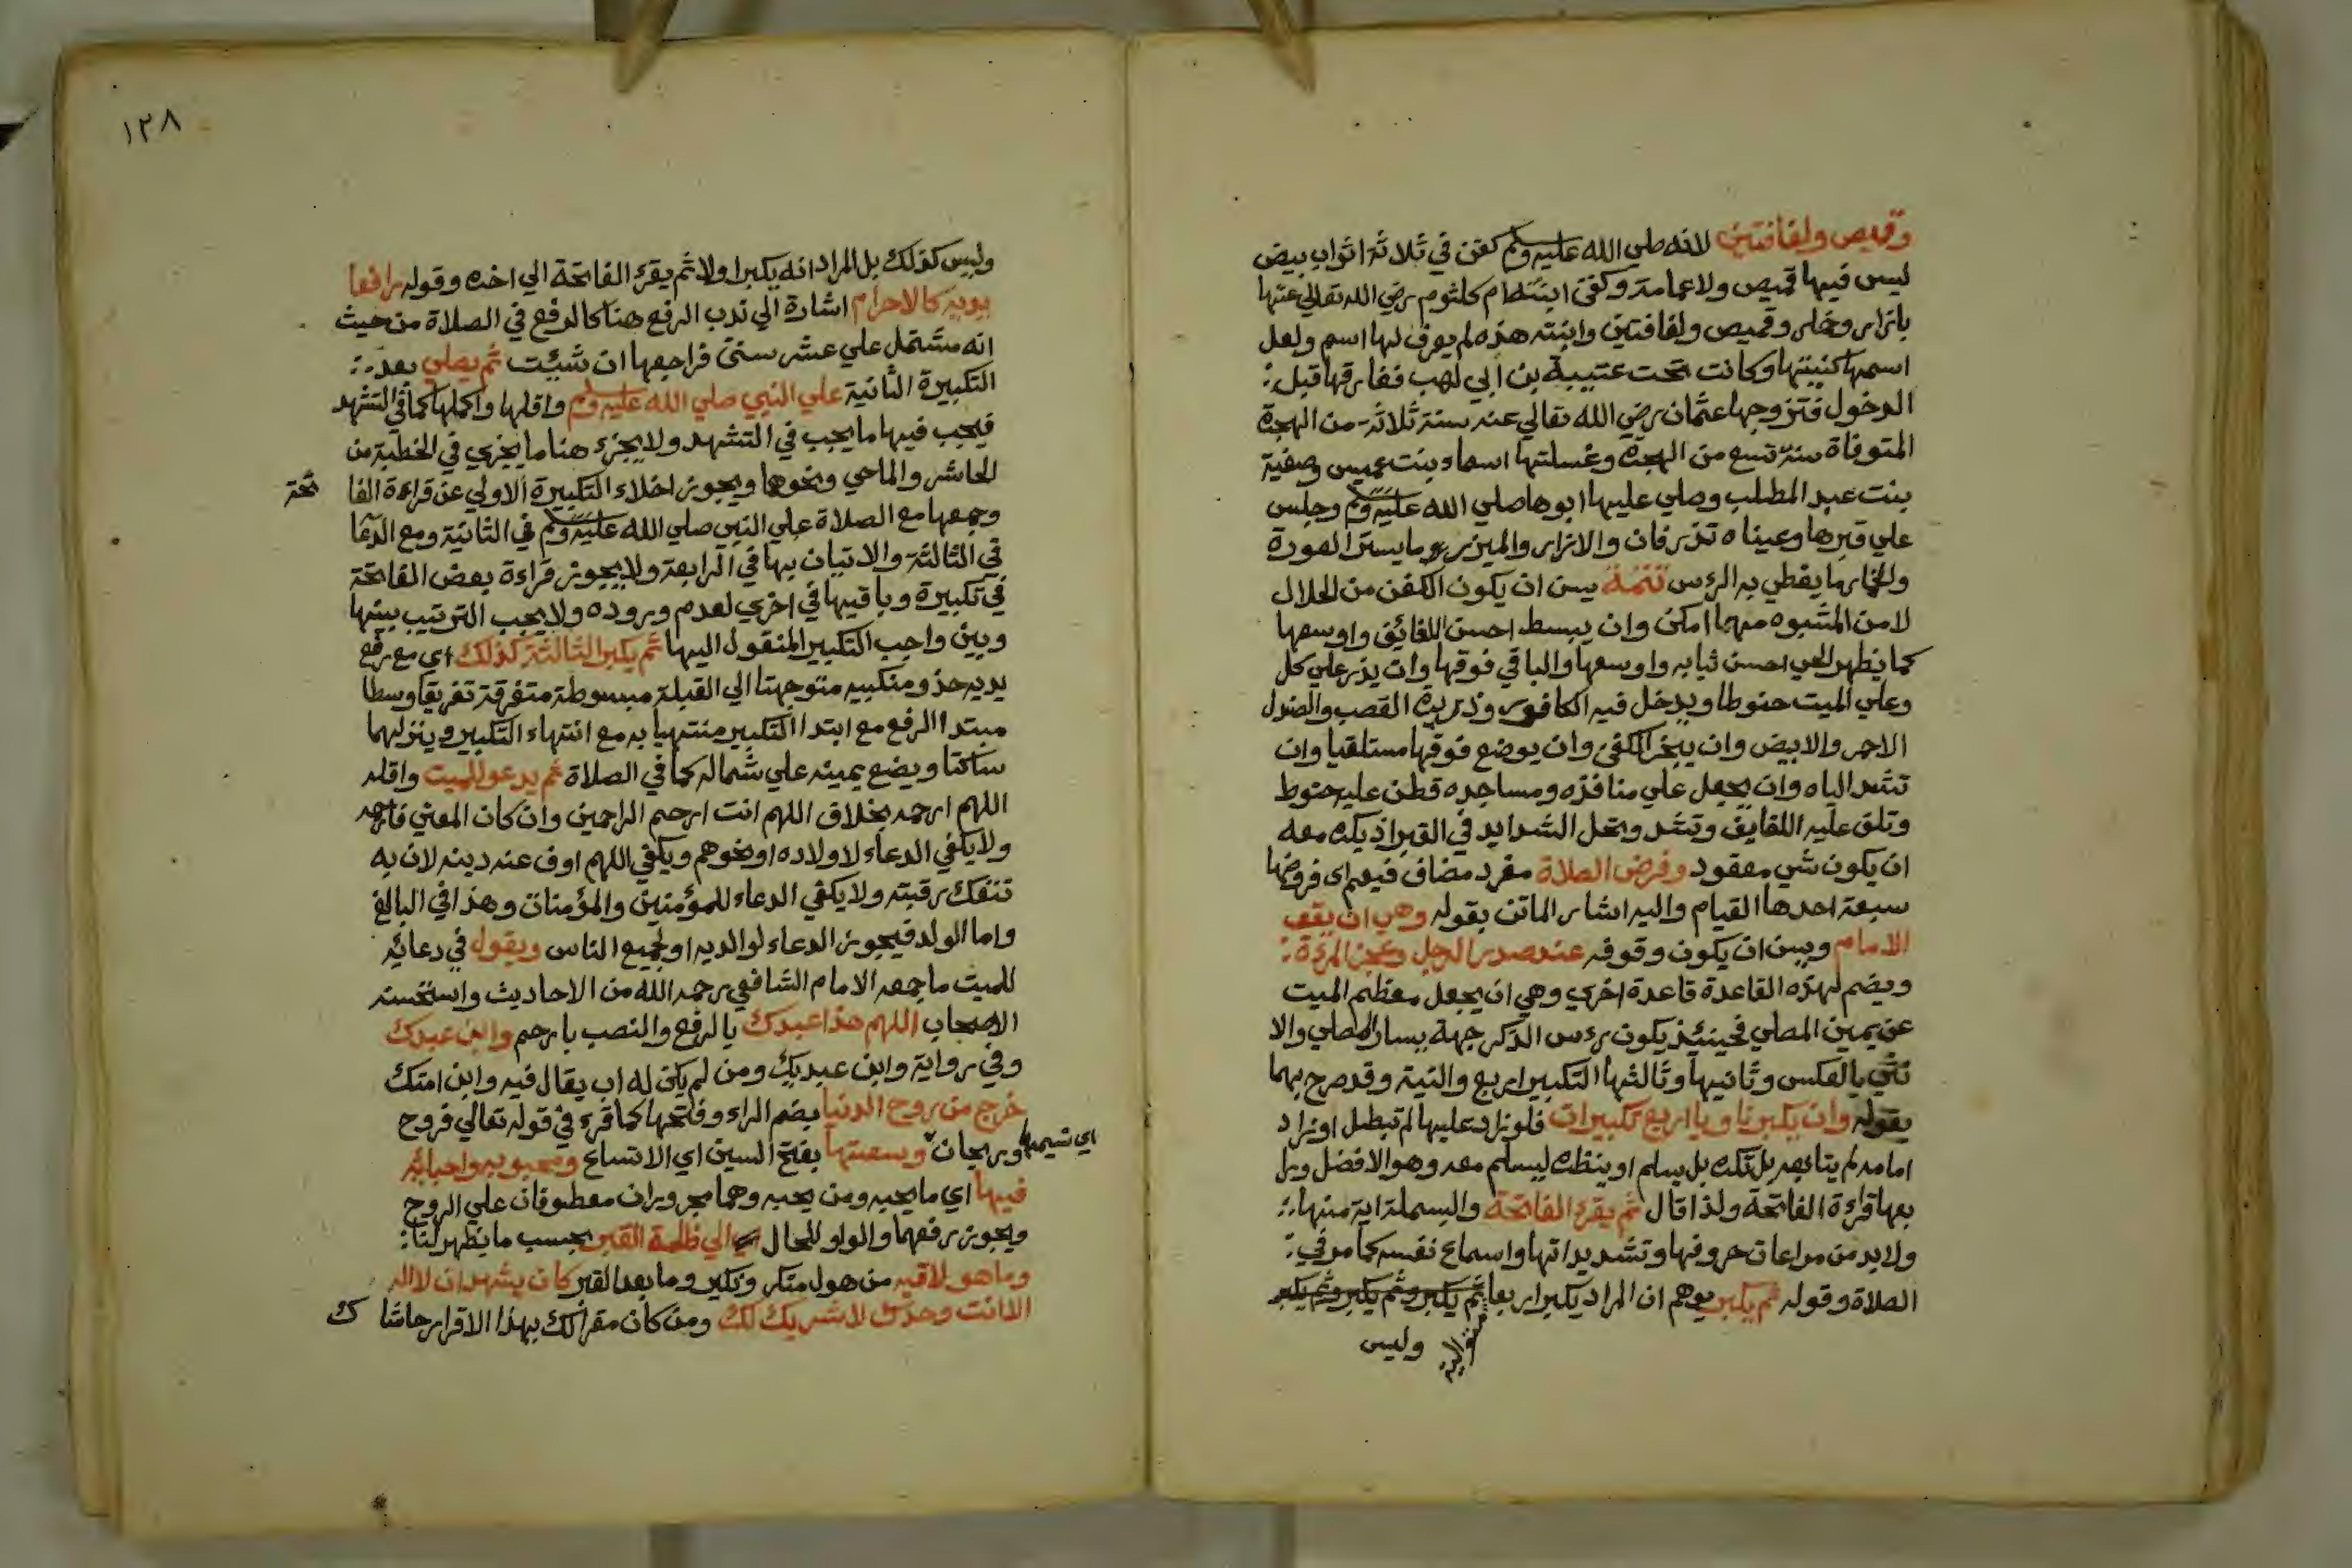 وقميص ولفافتين لانه صلي الله عليه وسلم كفن في ثلاثة اثواب بيض
ليس فيها قميص ولا عمامة وكفن ابنته ام كلثوم رضي الله تعالي عنها
بازار وخمار وقميص ولفافتين وابنته هذه لم يعرف لها اسم ولعل
اسمها كنيتها وكانت تحت عتيبة بن ابي لهب ففارقها قبل
الدخول فتزوجها عثمان رضي الله تعالي عنه سنة ثلاثة من الهجرة
المتوفاة سنة تسع من الهجرة وغسلتها اسماء بنت عميس وصفية
بنت عبد المطلب وصلي عليها ابوها صلي الله عليه وسلم وجلس
علي قبرها وعيناه تذرفان والازار والميزر ما يستر العورة
والخمار ما يغطي به الرءس تتمة يسن ان يكون الكفن من الحلال
لا من المشبوه مهما امكن وان يبسط احسن اللفائف واوسعها
كما يظهر الحي احسن ثيابه واوسعها والباقي فوقها وان يذر علي كل
وعلي الميت حنوط ويدخل فيه الكافور وذريرة القصب والصندل
الاحمر والابيض وان يبخر الكفن وان يوضع فوقها مستلقيا وان
تشد الياه وان يجعل علي منافذه ومساجده قطن عليه حنوط
وتلف عليه اللفايف وتشد وتحل الشدايد في القبر اذ يكره معه
ان يكون شي معقود وفرض الصلاة مفرد مضاف فيعم اي فروضها
سبعة احدها القيام واليه اشار الماتن بقوله وهي ان يقف
الامام ويسن ان يكون وقوفه عند صدر الرجل وعجز المرءة
ويضم لهذه القاعدة قاعدة اخري وهي ان يجعل معظم الميت
عن يمين المصلي فحينئذ يكون رءس الذكر جهة يسار المصلي والا
نثي بالعكس وثانيها وثالثها التكبير اربع والنية وقد صرح بهما
بقوله وان يكبر ناويا اربع تكبيرات فلو زاد عليها لم تبطل او زاد
امامه لم يتابعه بل تكره بل يسلم او ينتظره ليسلم معه وهو الافضل ورا
بعها قراءة الفاتحة ولذا قال ثم يقرء الفاتحة والبسملة اية منها
ولا بد من مراعات حروفها وتشديداتها واسماع نفسه كما مر في
الصلاة وقوله ثم يكبر يوهم ان المراد يكبر اربعا ثم يكبر وثم يكبر وثم يكبر
وليس
١٢٨
وليس كذلك بل المراد انه يكبر اولا ثم يقرء الفاتحة الي اخره وقوله رافعا
يديه كالاحرام اشارة الي ندب الرفع هنا كالرفع في الصلاة من حيث
انه مشتمل علي عشر سنن فراجعها ان شيت ثم يصلي بعد
التكبيرة الثانية علي النبي صلي الله عليه وسلم واقلها واكملها كما في التشهد
فيجب فيها ما يجب في التشهد ولا يجزء هنا ما يجزي في الخطبة من
الحاشر والماحي ونحوهما ويجوز اخلاء التكبيرة الاولي عن قراءة الفا تحة
وجمعها مع الصلاة علي النبي صلي الله عليه وسلم في الثانية ومع الدعا
في الثالثة والاتيان بها في الرابعة ولا يجوز قراءة بعض الفاتحة
في تكبيرة وباقيها في اخري لعدم وروده ولا يجب الترتيب بينها
وبين واجب التكبير المنقول اليها ثم يكبر الثالثة كذلك اي مع رفع
يديه حذو منكبيه متوجهتا الي القبلة مبسوطة متفرقة تفريقا وسطا
مبتدا الرفع مع ابتدا التكبير منتهيا به مع انتهاء التكبير وينزلهما
ساكتا ويضع يمينه علي شماله كما في الصلاة ثم يدعو للميت واقله
اللهم ارحمه بخلاف اللهم انت ارحم الراحمين وان كان المعني فارحمه
ولا يكفي الدعاء لاولاده او نحوهم ويكفي اللهم اوف عنه دينه لان به
تنفك رقبته ولا يكفي الدعاء للمؤمنين والمؤمنات وهذا في البالغ
واما الولد فيجوز الدعاء لوالديه او لجميع الناس ويقول في دعائه
للميت ما جمعه الامام الشافعي رحمه الله من الاحاديث واستحسنه
الاصحاب اللهم هذا عبدك يا لرفع والنصب بارحم وابن عبدك
وفي رواية وابن عبديك ومن لم يكن له اب يقال فيه وابن امتك
خرج من روح الدنيا بضم الراء وفتحها كما قرء في قوله تعالي فروح
اي نسيمها وريحان وسعتها بفتح السين اي الاتساع ومحبوبه واحبائه
فيها اي ما يحبه ومن يحبه وهما مجروران معطوفان علي الروح
ويجوز رفعهما والواو للحال الي ظلمة القبر بحسب ما يظهر لنا
وما هو لاقيه من هول منكر ونكير وما بعد القبر كان يشهد ان لا اله
الا انت وحدك لا شريك لك ومن كان مقرا لك بهذا الاقرار حاشا ك